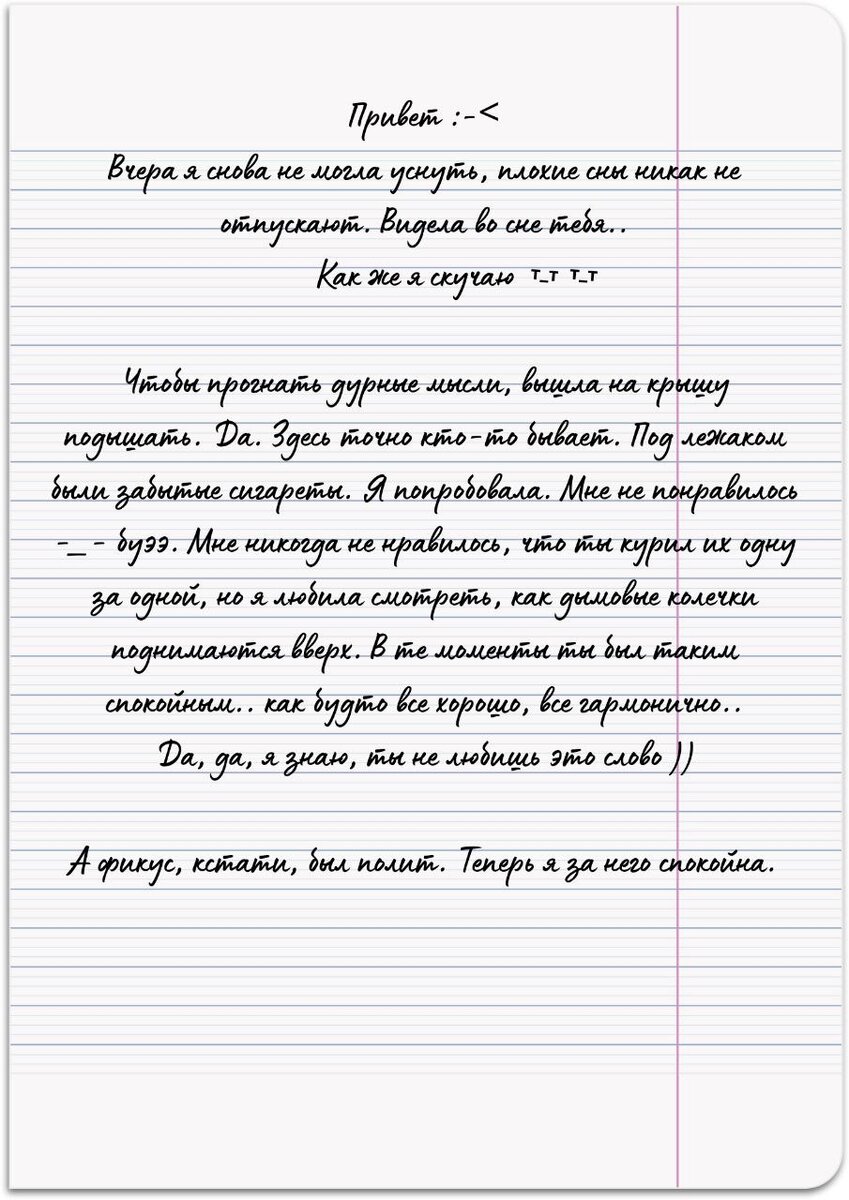 Привет :-<
Вчера я снова не могла уснуть, плохие сны никак не
отпускают. Видела во сне тебя..
Как же я скучаю т_т т_т
Чтобы прогнать дурные мысли, вышла на крышу
подышать. Да. Здесь точно кто-то бывает. Под лежаком
были забытые сигареты. Я попробовала. Мне не понравилось
-_- буээ. Мне никогда не нравилось, что ты курил их одну
за одной, но я любила смотреть, как дымовые колечки
поднимаются вверх. В те моменты ты был таким
спокойным.. как будто все хорошо, все гармонично..
Да, да, я знаю, ты не любишь это слово ))
А фикус, кстати, был полит. Теперь я за него спокойна.